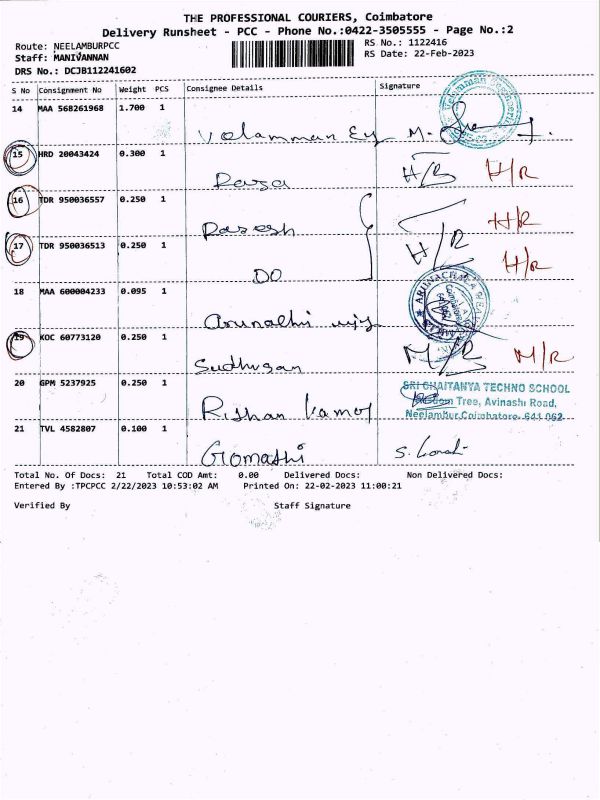 THE PROFESSIONAL COURIERS, Coimbatore
Delivery Runsheet - PCC - Phone No.:0422-3505555 - Page No.:2
Route: NEELAMBURPCC
RS No.: 1122416
Staff: MANIVANNAN
RS Date: 22-Feb-2023
DRS No.: DCJB112241602
S No Consignment No Weight PCS Consignee Details Signature
14 MAA 568261968 1.700 1
Velamman Ey M.
15 HRD 20043424 0.300 1
H/R
16 TDR 950036557 0.250 1
H/R
17 TDR 950036513 0.250 1
DO H/R H/R
18 MAA 600004233 0.095 1
19 KOC 60773120 0.250 1
Sudhusan M/R M/R
20 GPM 5237925 0.250 1
SRI CHAITANYA TECHNO SCHOOL
Tree, Avinashi Road,
Neelambur, Coimbatore- 641 062
21 TVL 4582807 0.100 1
Gomathi S.
Total No. Of Docs: 21 Total COD Amt: 0.00 Delivered Docs: Non Delivered Docs:
Entered By :TPCPCC 2/22/2023 10:53:02 AM Printed On: 22-02-2023 11:00:21
Verified By Staff Signature